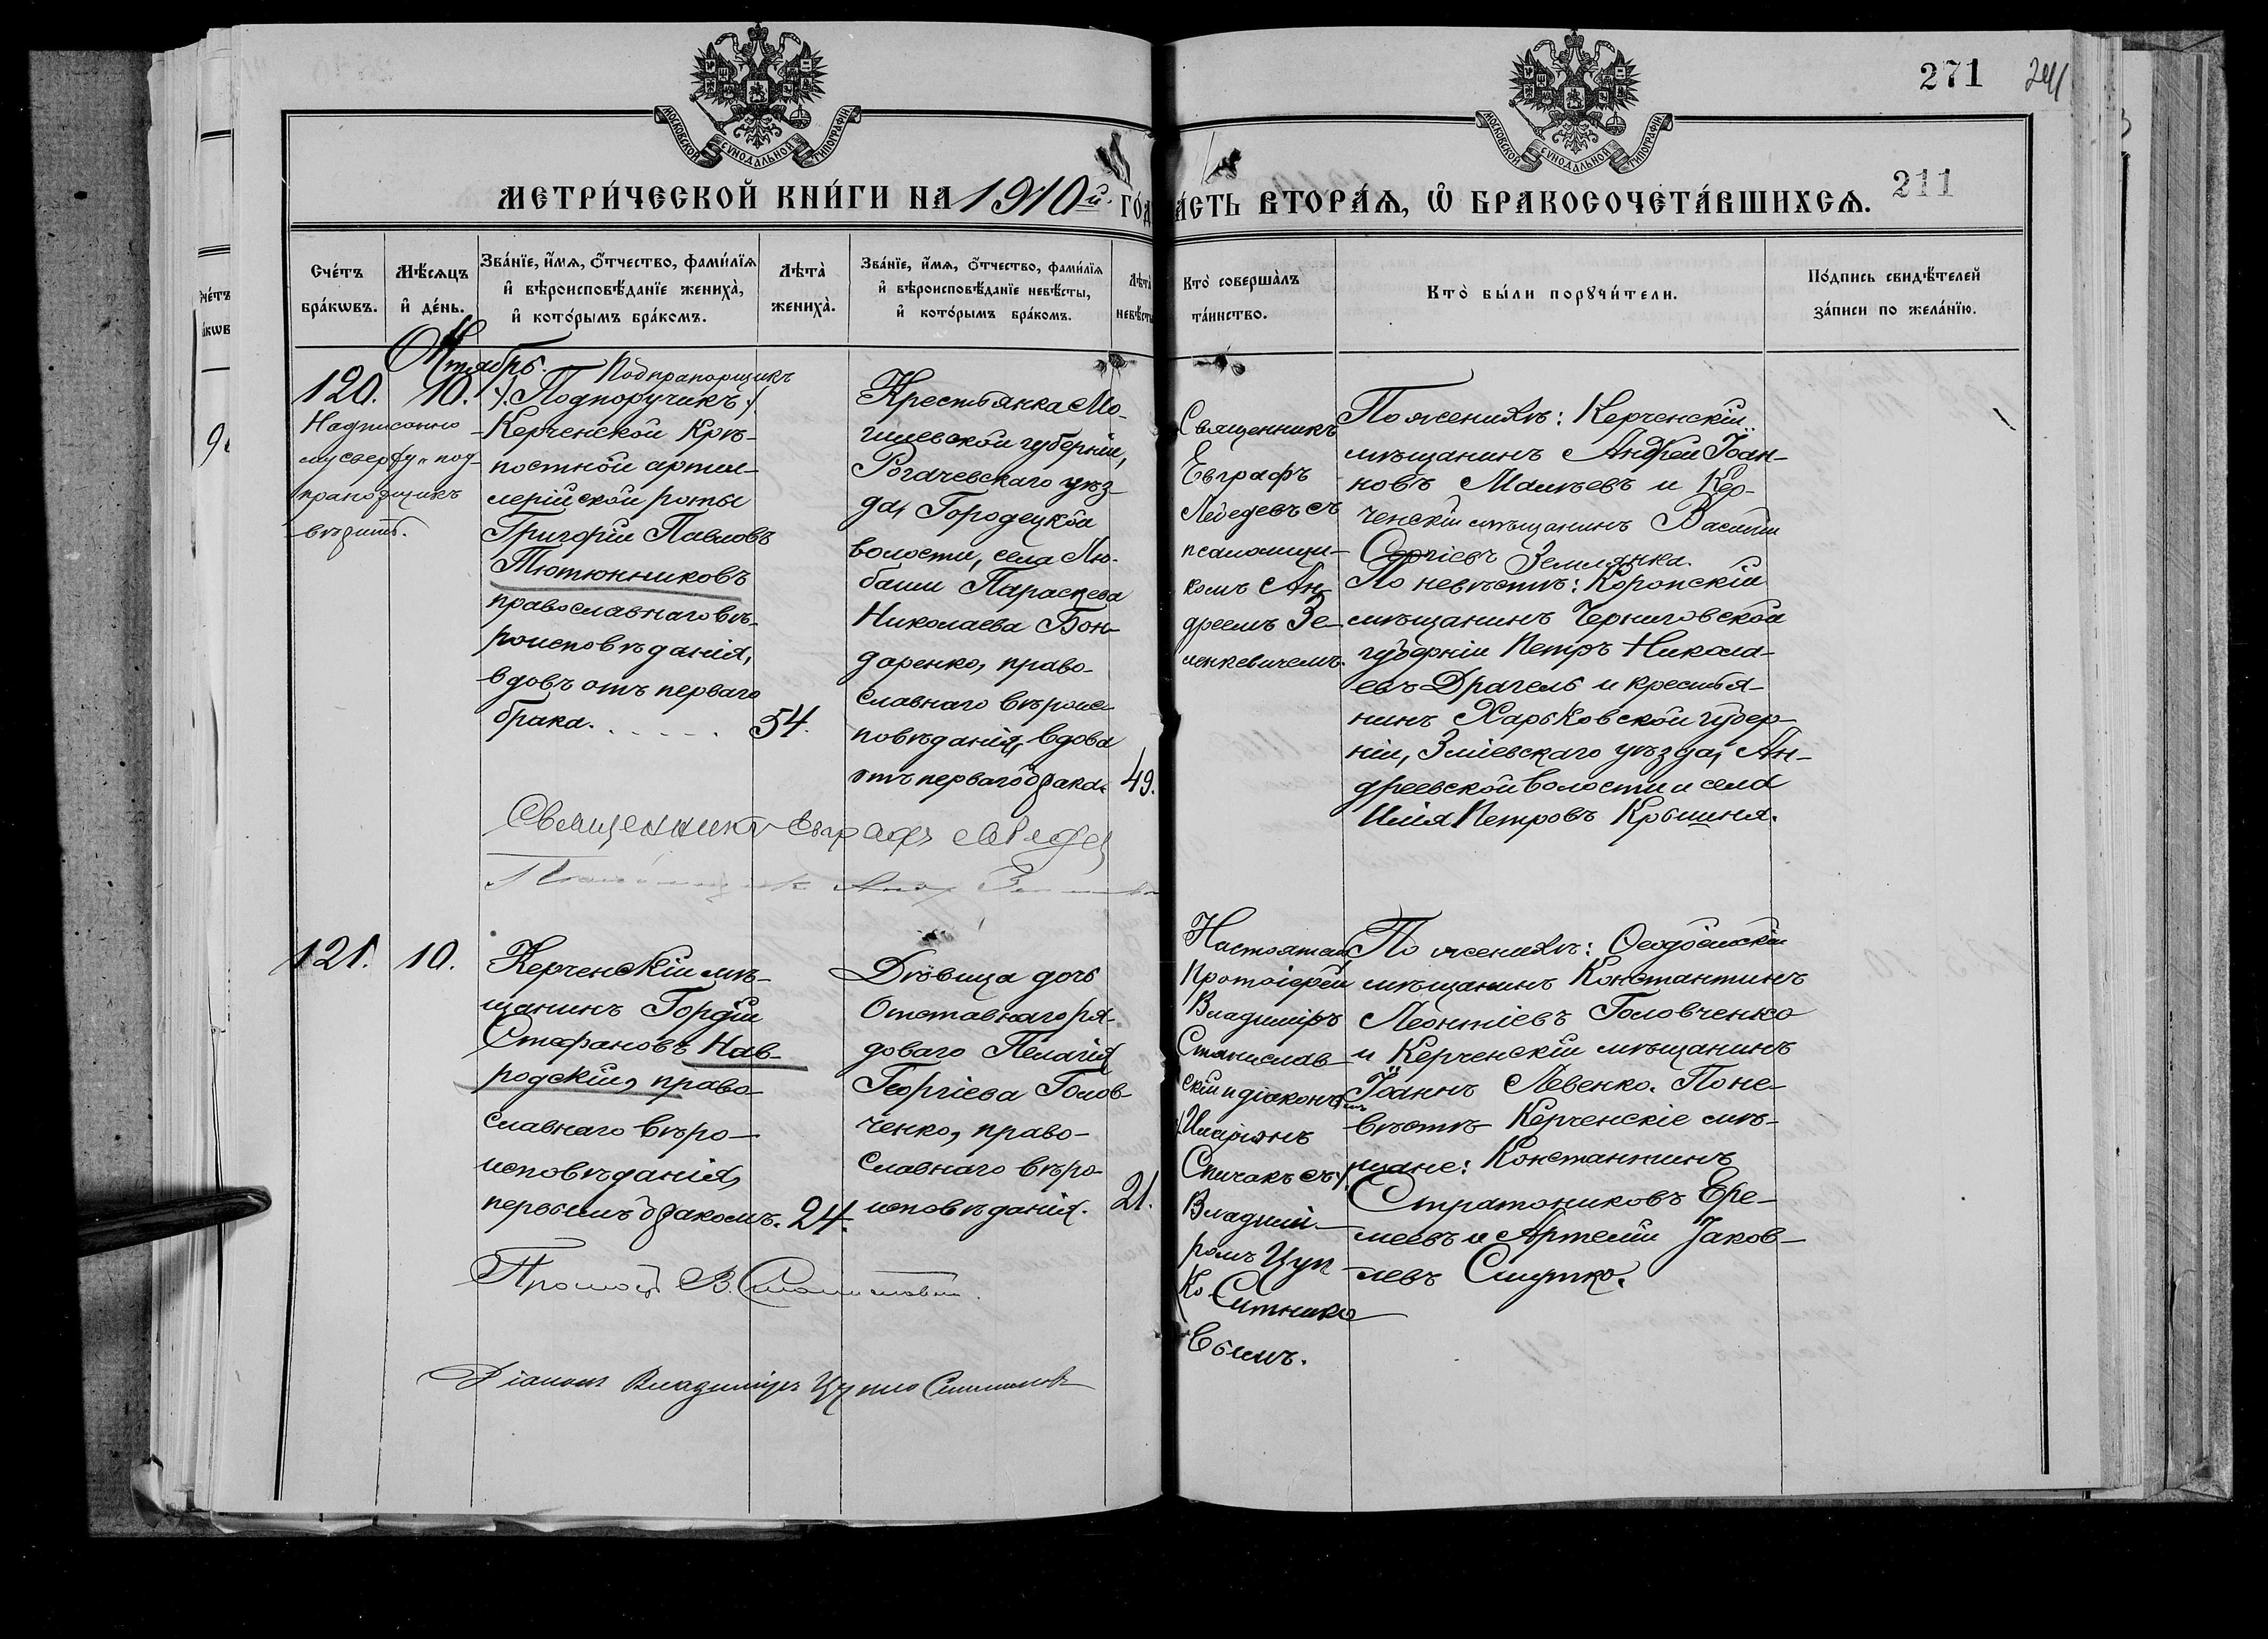 271
211
МОСКОВСКОЙ СѴНОДАЛЬНОЙ ТИПОГРАФІИ
МОСКОВСКОЙ СѴНОДАЛЬНОЙ ТИПОГРАФІИ
МЕТРИ́ЧЕСКОЙ КНИ́ГИ НА 1910й ГО́Д
А́СТЬ ВТОРА́Ѧ, Ѡ҆ БРАКОСОЧЕТА́ВШИХСѦ.
Сче́тъ
бра́кѡвъ.
Мѣ́сѧцъ
и҆ де́нь.
Зва́нїе, и҆́мѧ, ѻ҆́тчество, фами́лїѧ
и҆ вѣроисповѣ́данїе жениха̀,
и҆ кото́рымъ бра́комъ.
Лѣта̀
жениха̀.
Зва́нїе, и҆́мѧ, ѻ҆́тчество, фами́лїѧ
и҆ вѣроисповѣ́данїе невѣ́сты,
и҆ кото́рымъ бра́комъ.
Лѣта̀
невѣ́сты
Кто̀ соверша́лъ
та́инство.
Кто̀ бы́ли порꙋчи́тели.
По́дпись свидѣ́телей
за́писи по жела́нїю.
Октябрь.
120.
10.
Надписанно
сверху „под-
прапорщикъ
вѣрить.
Подпрапорщикъ
/. Подпоручикъ ./
Керченской Крѣ-
постной артил-
лерійской роты
Григорій Павловъ
Тютюнниковъ
православнаго вѣ-
роисповѣданія,
вдовъ отъ перваго
брака.
54.
Крестьянка Мо-
гилевской губерніи,
Рогачевскаго уѣз-
да, Городецкой
волости, села Лю-
баши Параскева
Николаева Бон-
даренко, право-
славнаго вѣроис-
повѣданія, вдова
отъ перваго брака.
49.
Священникъ
Евграфъ
Лебедевъ съ
псаломщи-
комъ Ан-
дреемъ Зе-
ленкевичемъ.
По женихѣ: Керченскій
мѣщанинъ Андрей Іоан-
новъ Малѣевъ и Кер-
ченскій мѣщанинъ Василій
Сергіевъ Землянка.
По невѣстѣ: Коропскій
мѣщанинъ Черниговской
губерніи Петръ Никола-
евъ Драгель и крестья-
нинъ Харьковской губер-
ніи, Зміевскаго уѣзда, Ан-
дреевской волости и села
Илія Петровъ Крышня.
Священникъ Евграфъ Лебедев
121.
10.
Керченскій мѣ-
щанинъ Гордій
Стефановъ Нав-
родскій, право-
славнаго вѣро-
исповѣданія,
первымъ бракомъ.
24.
Дѣвица дочь
Отставнаго ря-
доваго Пелагія
Георгіева Голов-
ченко, право-
славнаго вѣро-
исповѣданія.
21.
Настоятель
Протоіерей
Владиміръ
Станислав-
скій и діаконъ
Иларіонъ
Спичакъ съ
Владимі-
ромъ Цуп
ко-Ситнико
вымъ.
По женихѣ: Ѳеодосійскій
мѣщанинъ Константинъ
Леонтіевъ Головченко
и Керченскій мѣщанинъ
Іоаннъ Левенко. По не-
вѣстѣ Керченскіе мѣ-
щане: Константинъ
Стратониковъ Ере-
меевъ и Артемій Яков-
левъ Смутко.
Протоіер В. Станиславскій.
Діаконъ Владиміръ Цупко Ситниковъ